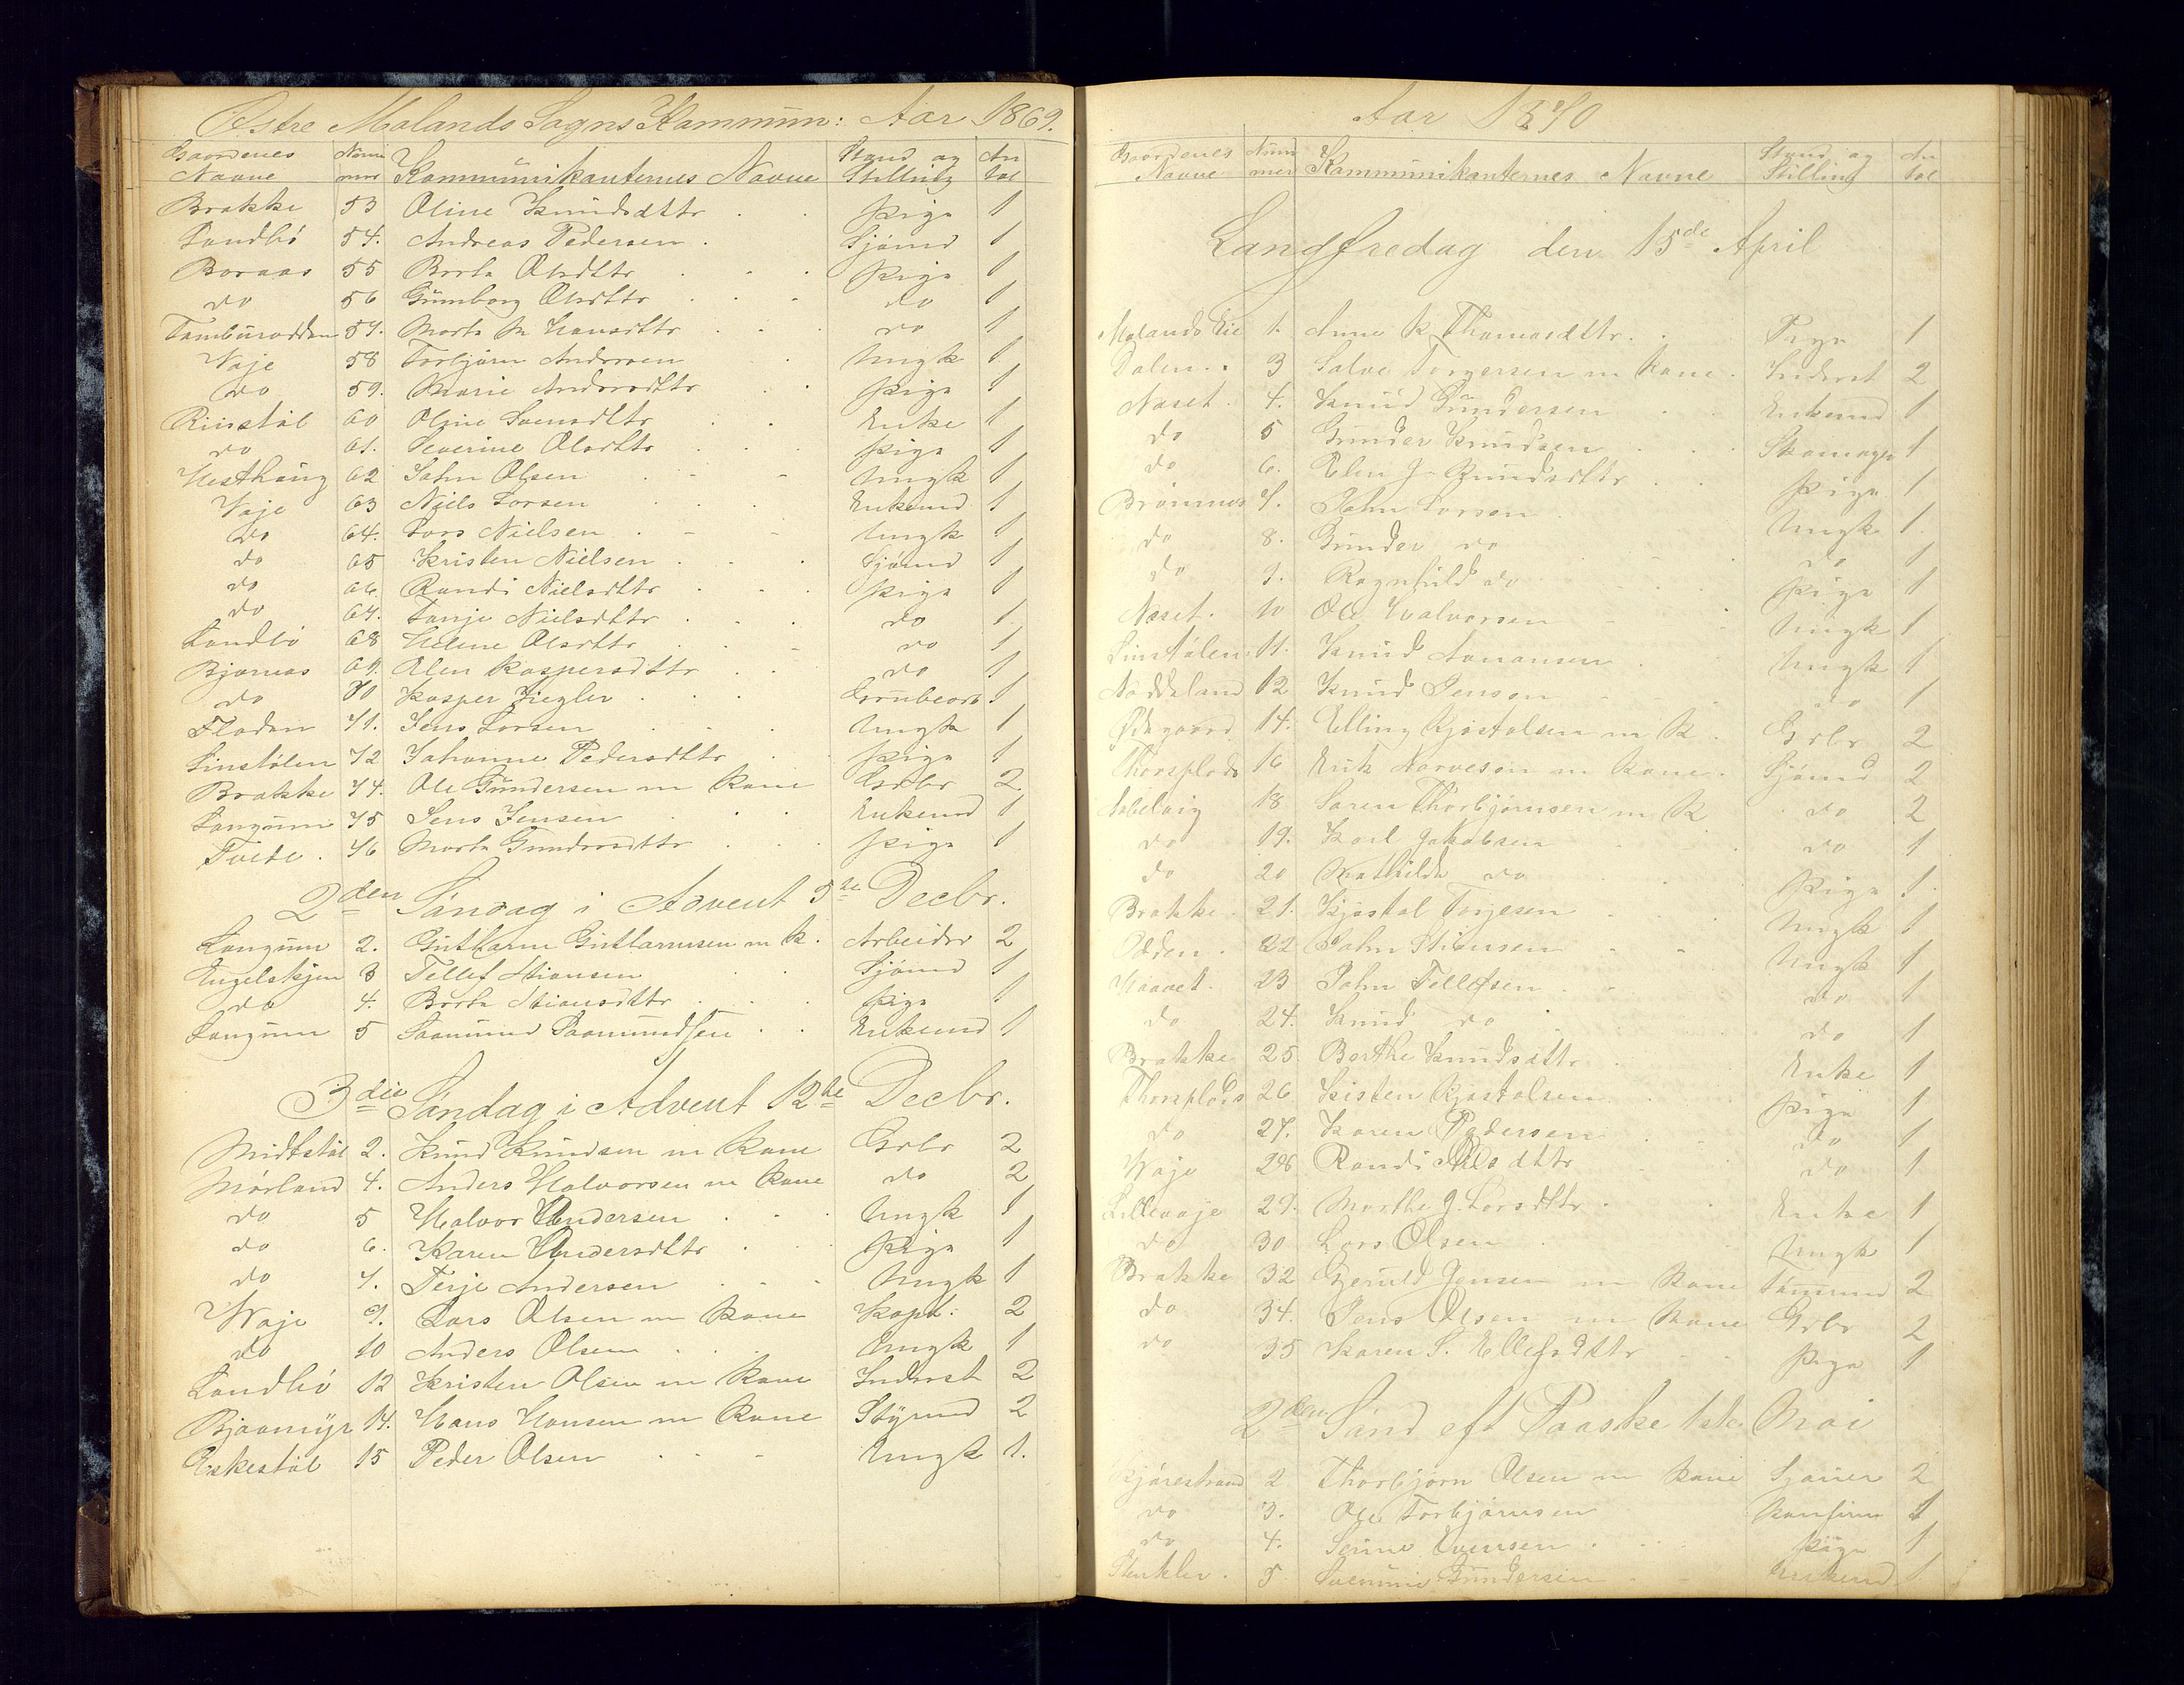 Østre Molands Sogns Kommun: Aar 1869.
Gaardenes Navne Nummer Kommunikanternes Navne Stand og Stilling Antal
Brakke 53 Oline Knudsdttr pige 1
Sandbö 54. Andreas Pedersen. Sjömd 1
Boraas 55 Berta Olsdttr pige 1
do 56 Gunborg Olsdttr do 1
57. Marta M Hansdttr do 1
Waje 58 Torbjörn Andersen Ungk 1
do 59. Marie Andersdttr pige 1
Rinstöl 60 Oline Svensdttr Enke 1
do 61. Severine Olsdttr pige 1
Hesthaug 62 John Olsen Ungk 1
Waje 63 Niels Larsen Enkemd 1
do 64. Lars Nielsen Ungk 1
do 65 Kristen Nielsen Sjömd 1
do 66. Randi Nielsdttr pige 1
do 67. Tanje Nielsdttr do 1
Sandbö 68 Helene Olsdttr do 1
Bjornes 69. Olen Kaspersdttr do 1
do 70 Kasper Ziegler Grubearb. 1
Floden 71. Jens Larsen Ungk 1
Linstölen 72 Johanne Pedersdttr pige 1
Brakke 74. Ole Gundersen m Kone Grbr 2
Langum 75 Jens Jensen Enkemd 1
Tvede. 76 Marta Gundersdttr pige 1
2den Söndag i Advent 5te Decbr.
Langum 2. Guttorm Guttormsen m k. Arbeider 2
Engelskjen 3 Tellef Stiansen Sjömd 1
do 4. Berta Stiansdttr pige 1
Langum 5 Saamund Saamundsen Enkemd 1
3die Söndag i Advent 12te Decbr.
Midtstöl 2. Knud Knudsen m Kone Grbr 2
Mörland 4. Anders Halvorsen m Kone do 2
do 5 Halvor Andersen Ungk 1
do 6. Karen Andersdttr pige 1
do 7. Terje Andersen Ungk 1
Waje 9. Lars Olsen m Kone Kapt: 2
do 10 Anders Olsen Ungk 1
Sandbö 12 Kristen Olsen m Kone Inderst 2
Bjaamyr 14. Hans Hansen m Kone Styrmd 2
Eskestöl 15 Peder Olsen Ungk 1.
Aar 1870
Gaardenes Navne Nummer Kommunikanternes Navne Stand og Stilling Antal
Langfredag den 15de April
Molands Eie 1. Anne K Thomasdttr. Pige 1
Dalen. 3 Salve Torgersen m Kone. Inderst 2
Naset. 4. Knud Gundersen Enkemd 1
do 5 Gunder Knudsen Skomager 1
do 6. Elen J Gundsdttr pige 1
Brömnes 7. John Larsen Ungk 1.
do 8. Gunder do do 1
do 9. Ragnhild do pige 1
Naset. 10 Ole Halvorsen Ungk 1
Linstölen 11. Knud Aanonsen Ungk 1
Noddeland 12 Knud Jensen do 1
Ödegaard 14. Elling Kjöstolsen m K. Grbr 2
Thorsplads 16 Erik Narvesen m Kone. Sjömd 2
18 Soren Thorbjörnsen m K do 2
do 19. Karl Jakobsen do 1
do 20 Mathilde do pige 1.
Brakke 21. Kjöstol Torjesen Ungk 1
Odden. 22 John Stiansen Ungk 1
23 John Tellefsen do 1
do 24. Knud do do 1
Brakke 25 Berthe Knudsdttr Enke 1
Thorsplads 26 Kisten Kjöstolsen pige 1
do 27. Karen Pedersen do 1
Waje 28 Randi Nilsdttr do 1
Lillevaje 29. Marthe J. Larsdttr. Enke 1
do 30 Lars Olsen Ungk 1
Brakke 32 Gjeruld Jensen m Kone Tömmmd 2
do 34. Jens Olsen m Kone Grbr 2
do 35 Karen S. Ellefsdttr pige 1
2den Sönd eft Paaske 1ste Mai
Kjörestrand 2 Thorbjörn Olsen m Kone 2
do 3. Ole Torbjörnsen Konfirm 1
do 4. pige 1
5 Gundersen Enkemd 1